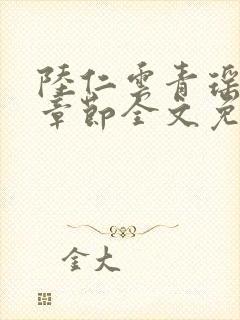 陸仁雲青瑶
章節全文免
金大